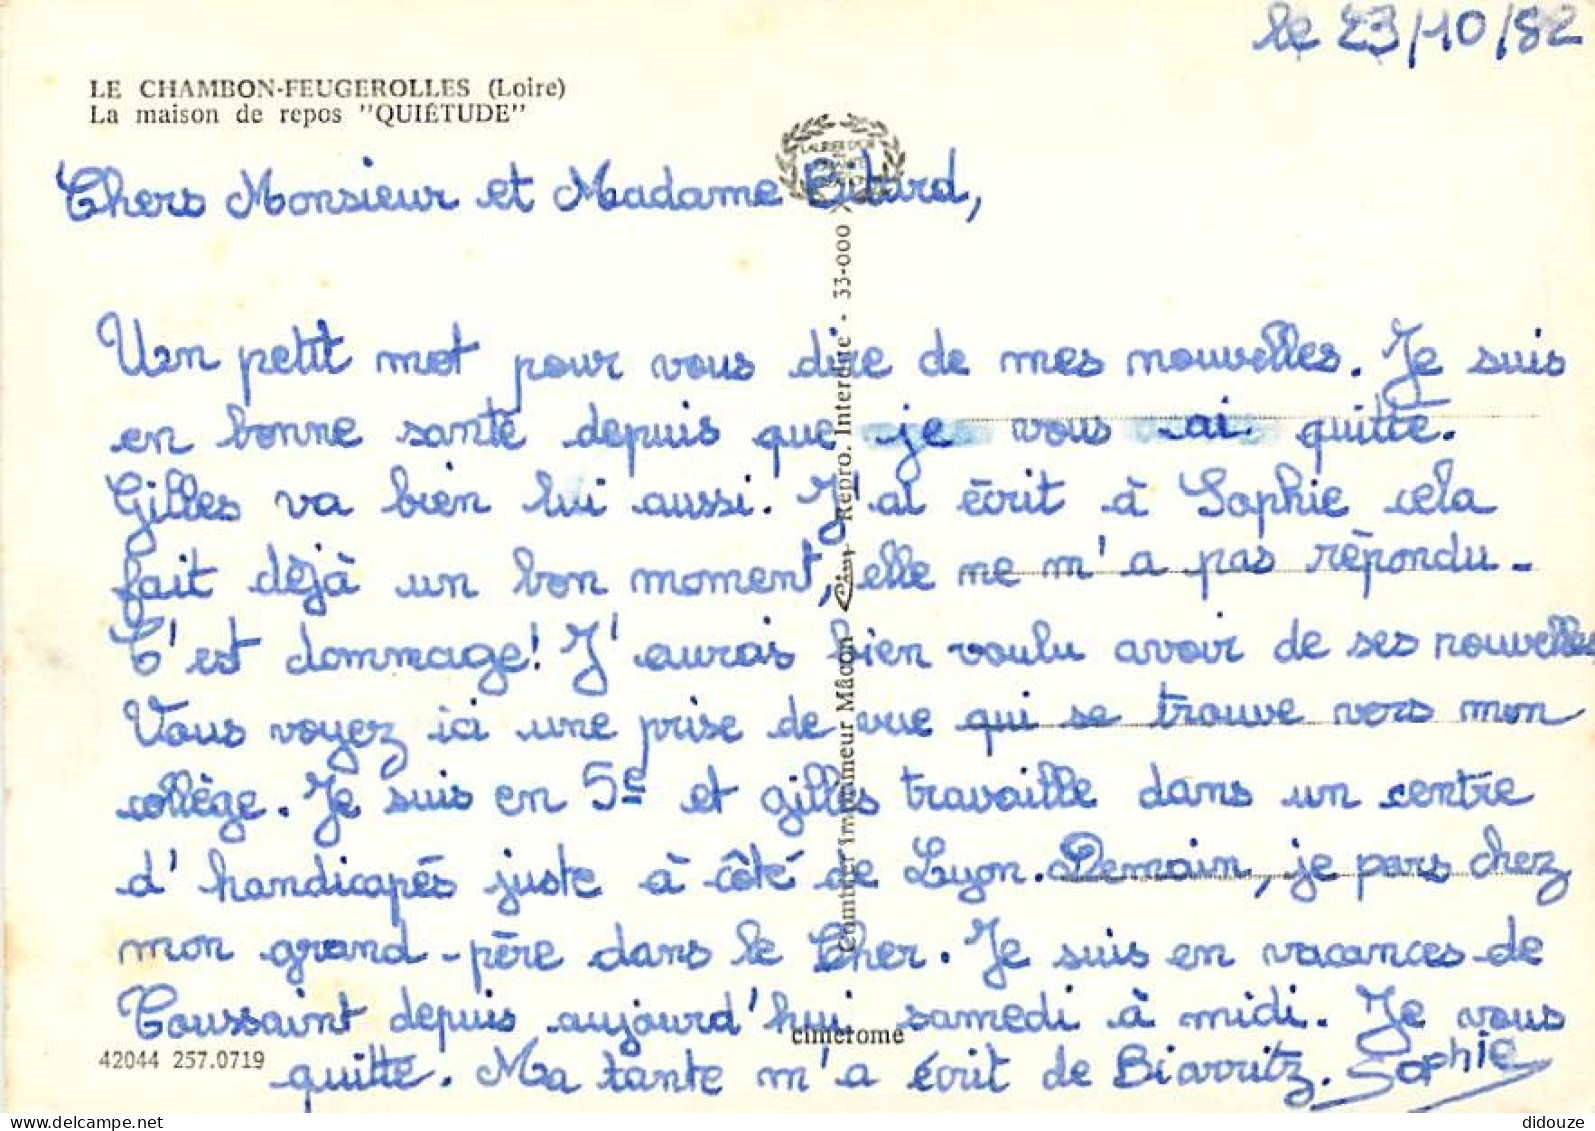 le 23/10/82
LE CHAMBON-FEUGEROLLES (Loire)
La maison de repos "QUIÉTUDE"
Chers Monsieur et Madame Bitard,
Un petit mot pour vous dire de mes nouvelles. Je suis
en bonne santé depuis que je vous ai quitté.
Gilles va bien lui aussi. J'ai écrit à Sophie cela
fait déjà un bon moment, elle ne m'a pas répondu.
C'est dommage! J'aurais bien voulu avoir de ses nouvelles
Vous voyez ici une prise de vue qui se trouve vers mon
collège. Je suis en 5e et gilles travaille dans un centre
d'handicapés juste à côté de Lyon. Demain, je pars chez
mon grand-père dans le Cher. Je suis en vacances de
Toussaint depuis aujourd'hui samedi à midi. Je vous
quitte. Ma tante m'a écrit de Biarritz. Sophie
Combier Imprimeur Mâcon Cim Repro. Interdite - 33-000
cimcrome
42044 257.0719
didouze